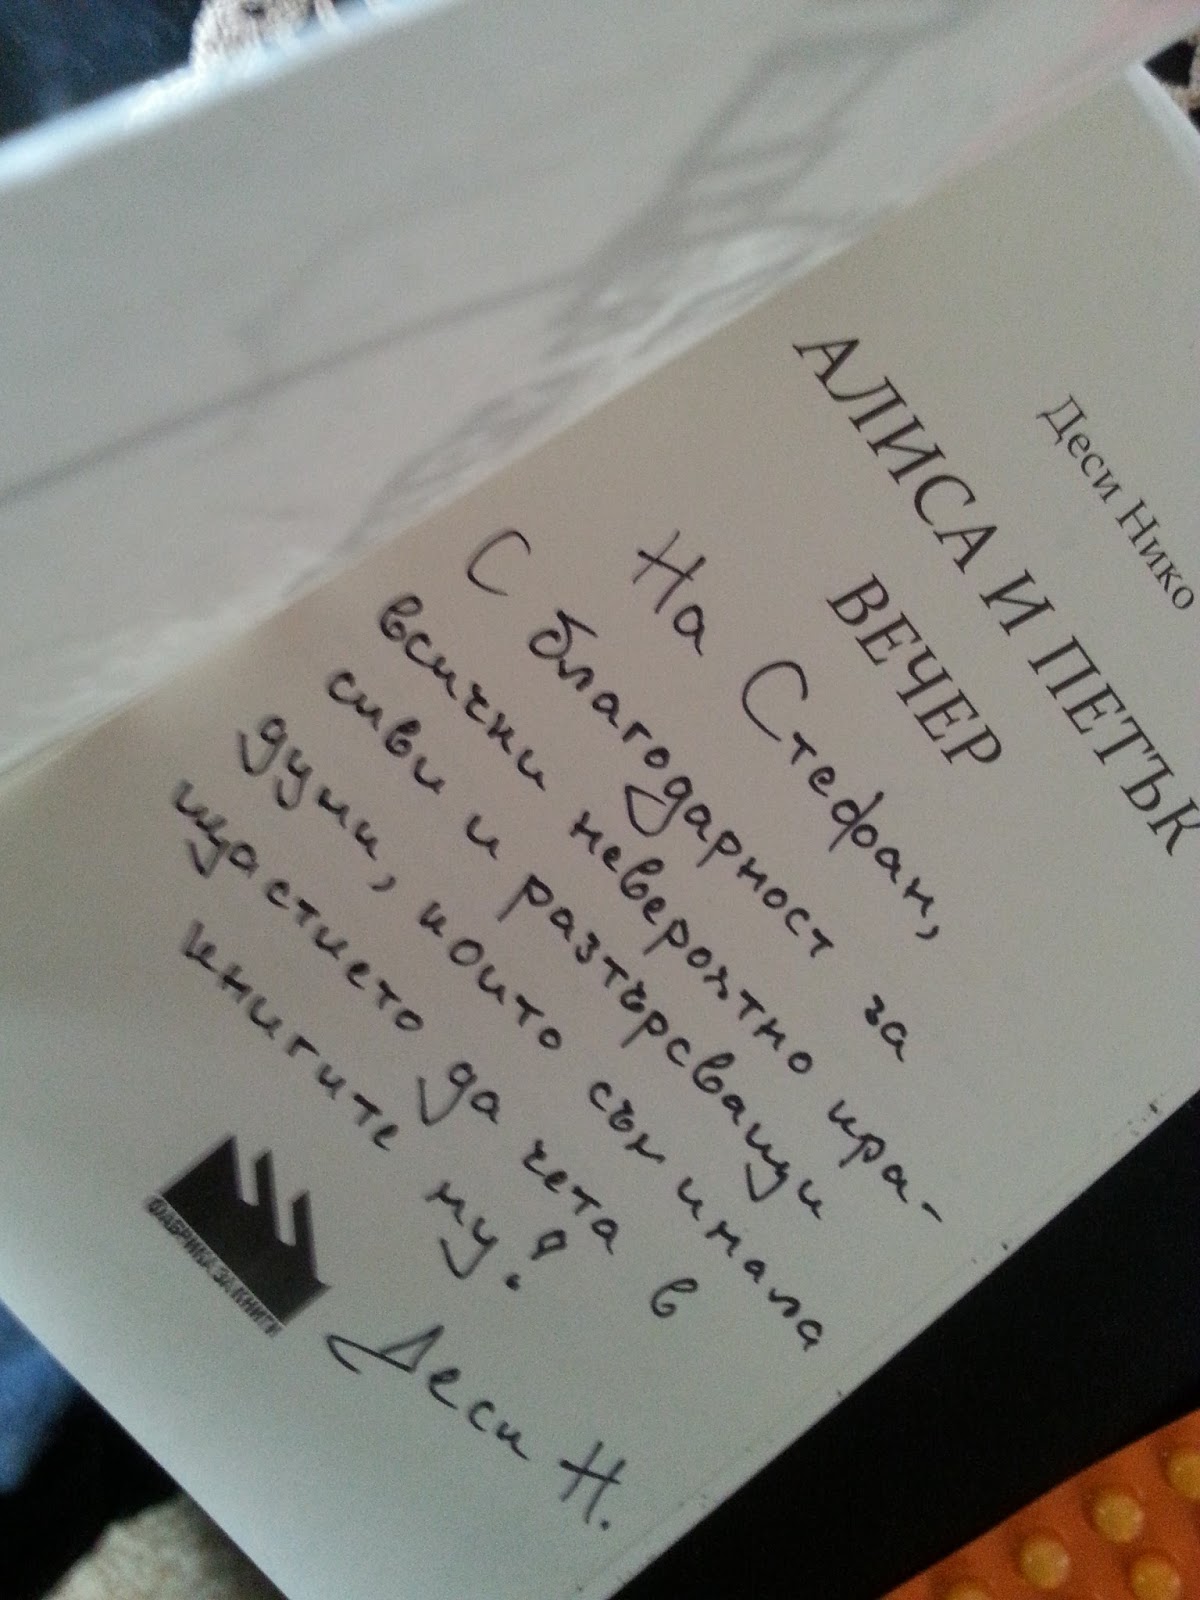 Деси Нико
АЛИСА И ПЕТЪК
ВЕЧЕР
На Стефан,
С благодарност за
всички невероятно кра-
сиви и разтърсващи
думи, които съм имала
щастието да чета в
книгите му!
Деси Н.
ФАБРИКА ЗА КНИГИ